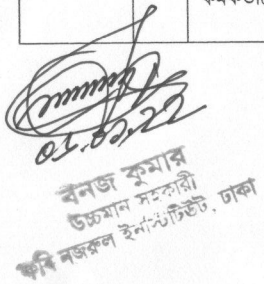 05.02.22
বনজ কুমার
উচ্চমান সহকারী
কবি নজরুল ইনস্টিটিউট, ঢাকা